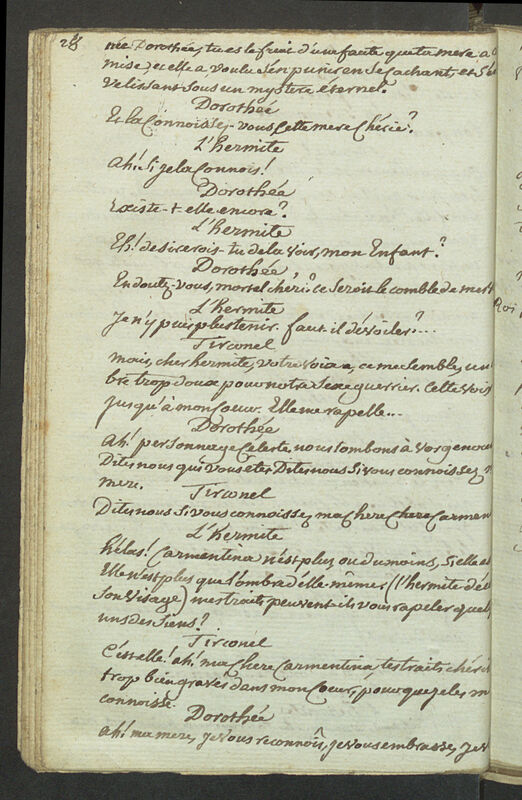 28
née Dorothée, tu es le fruit d'une faute que ta mere a
mise, et elle a voulu s'en punir en se cachant, et s'é
velissant sous un mystere éternel.
Dorothée
Et la connoissez-vous cette mere chérie?
L'hermite
Ah! si je la connois!
Dorothée
Existe-t-elle encore?
L'hermite
Eh! desirerois-tu de la voir, mon Enfant?
Dorothée
En doutez-vous, mortel chéri? ce seroit le comble de mes
L'hermite
Je n'y puis plus tenir. faut-il dévoiler?...
Tirconel
mais, cher hermite, votre voix a, ce me semble, un
bre trop doux pour notre sexe guerrier. Cette voix
jusqu'à mon Coeur. Elle me rapelle...
Dorothée
Ah! personnage Celeste, nous tombons à vos genoux
Dites nous qui vous êtes Dites nous si vous connoissez
mere.
Tirconel
Dites nous si vous connoissez ma chere chere Carmen
L'hermite
hélas! Carmentina n'est plus, ou du moins, si elle
Elle n'est plus que l'ombre d'elle-même (l'hermite dé
son visage) mes traits peuvent-ils vous rapeler quel
uns des siens?
Tirconel
C'est elle! ah! ma chere Carmentina, tes traits chér
trop bien gravés dans mon Coeur, pour que je les m
connoisse.
Dorothée
Ah! ma mere, je vous reconnoîs, je vous embrasse, je v
Roi